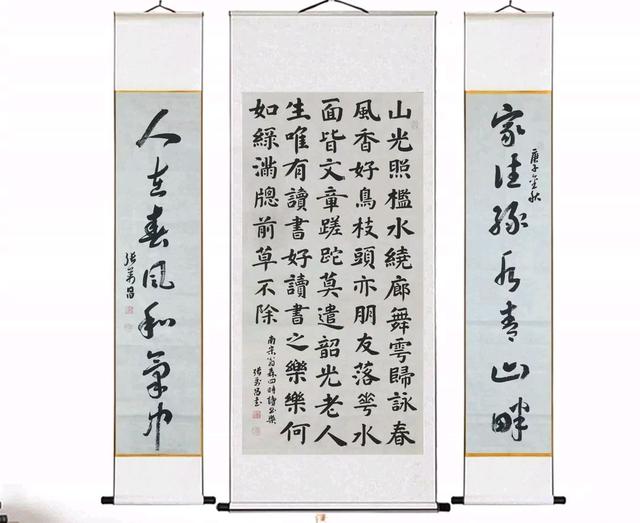 家住綠水青山畔
庚子金秋
山光照檻水繞廊舞雩歸詠春
風香好鳥枝頭亦朋友落花水
面皆文章蹉跎莫遣韶光老人
生唯有讀書好讀書之樂樂何
如綠滿牕前草不除
南宋翁森四時讀書樂
張萬昌書
人在春風和氣中
張萬昌